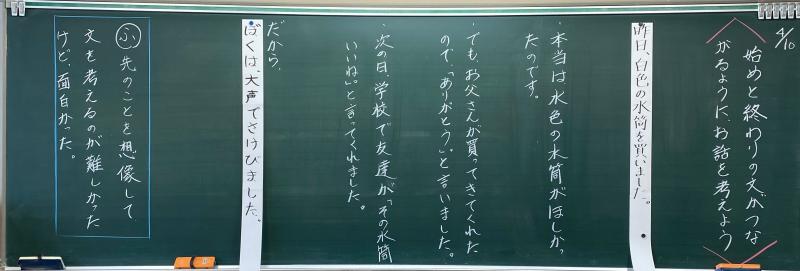 4/10
始めと終わりの文がつな
がるように、お話を考えよう
昨日、白色の水筒を買いました。
・本当は水色の水筒がほしかっ
たのです。
・でも、お父さんが買ってきてくれた
ので、「ありがとう」と言いました。
・次の日、学校で友達が「その水筒
いいね。」と言ってくれました。
だから、
ぼくは、大声でさけびました。
ふ 先のことを想像して
文を考えるのが難しかった
けど、面白かった。